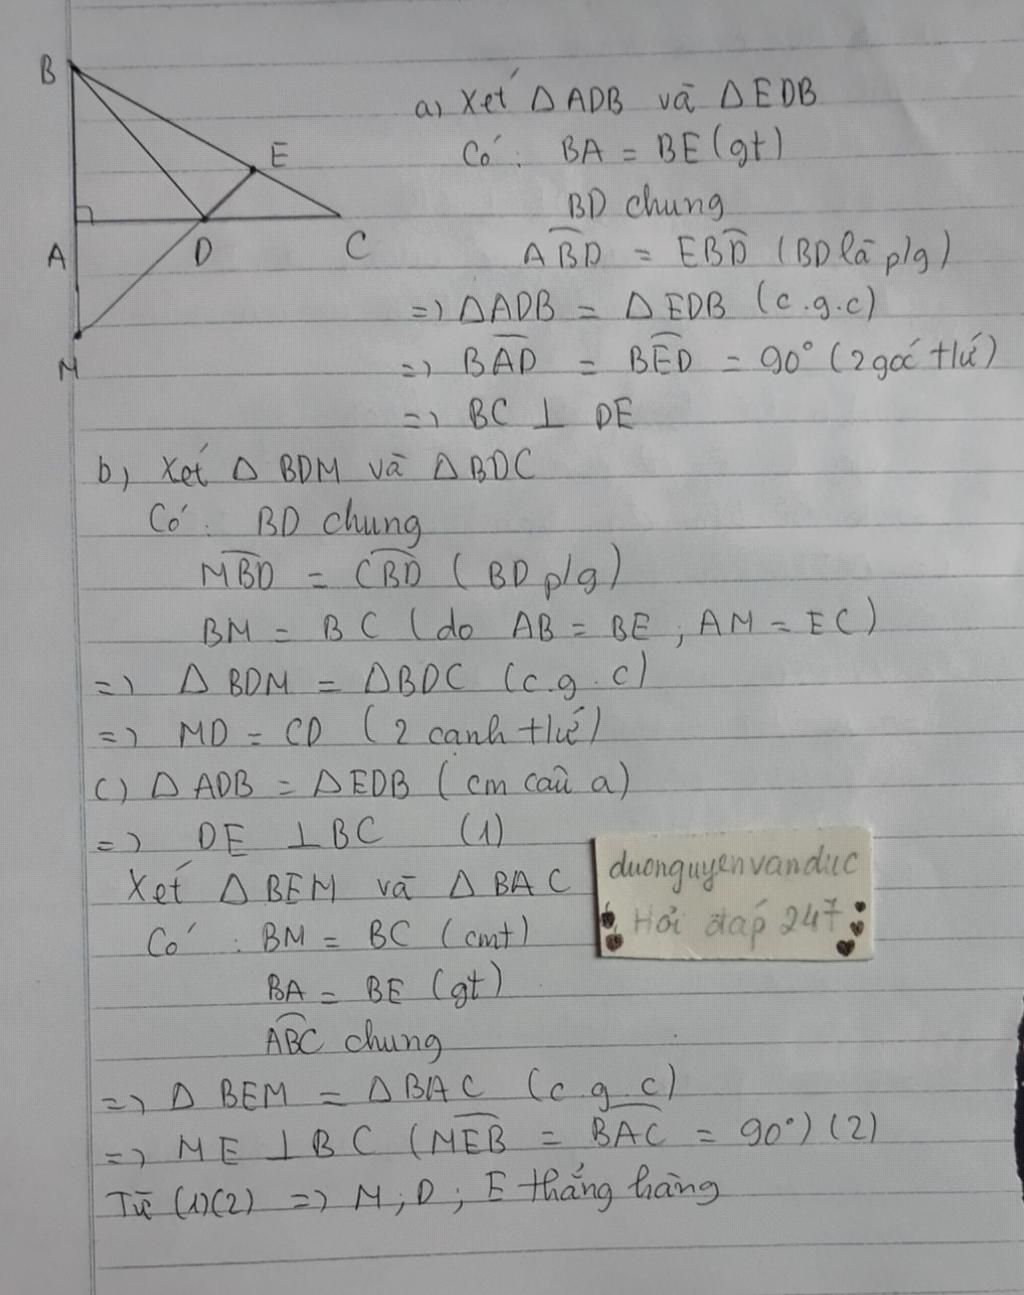 B
E
A
D
C
M
a) Xét △ ADB và △ EDB
Có : BA = BE (gt)
BD chung
ABD = EBD (BD là p/g)
=> △ADB = △EDB (c.g.c)
=> BAD = BED = 90° (2 góc tứ)
=> BC ⊥ DE
b) Xét △ BDM và △BDC
Có : BD chung
MBD = CBD (BD p/g)
BM = BC (do AB = BE ; AM = EC)
=> △ BDM = △BDC (c.g.c)
=> MD = CD (2 cạnh tứ)
c) △ ADB = △EDB (cm câu a)
=> DE ⊥ BC (1)
Xét △ BEM và △ BAC
Có : BM = BC (cmt)
BA = BE (gt)
ABC chung
=> △ BEM = △BAC (c g c)
=> ME ⊥ BC (MEB = BAC = 90°) (2)
Từ (1)(2) => M ; D ; E thẳng hàng
duonguyenvanduc
Hỏi đáp 247